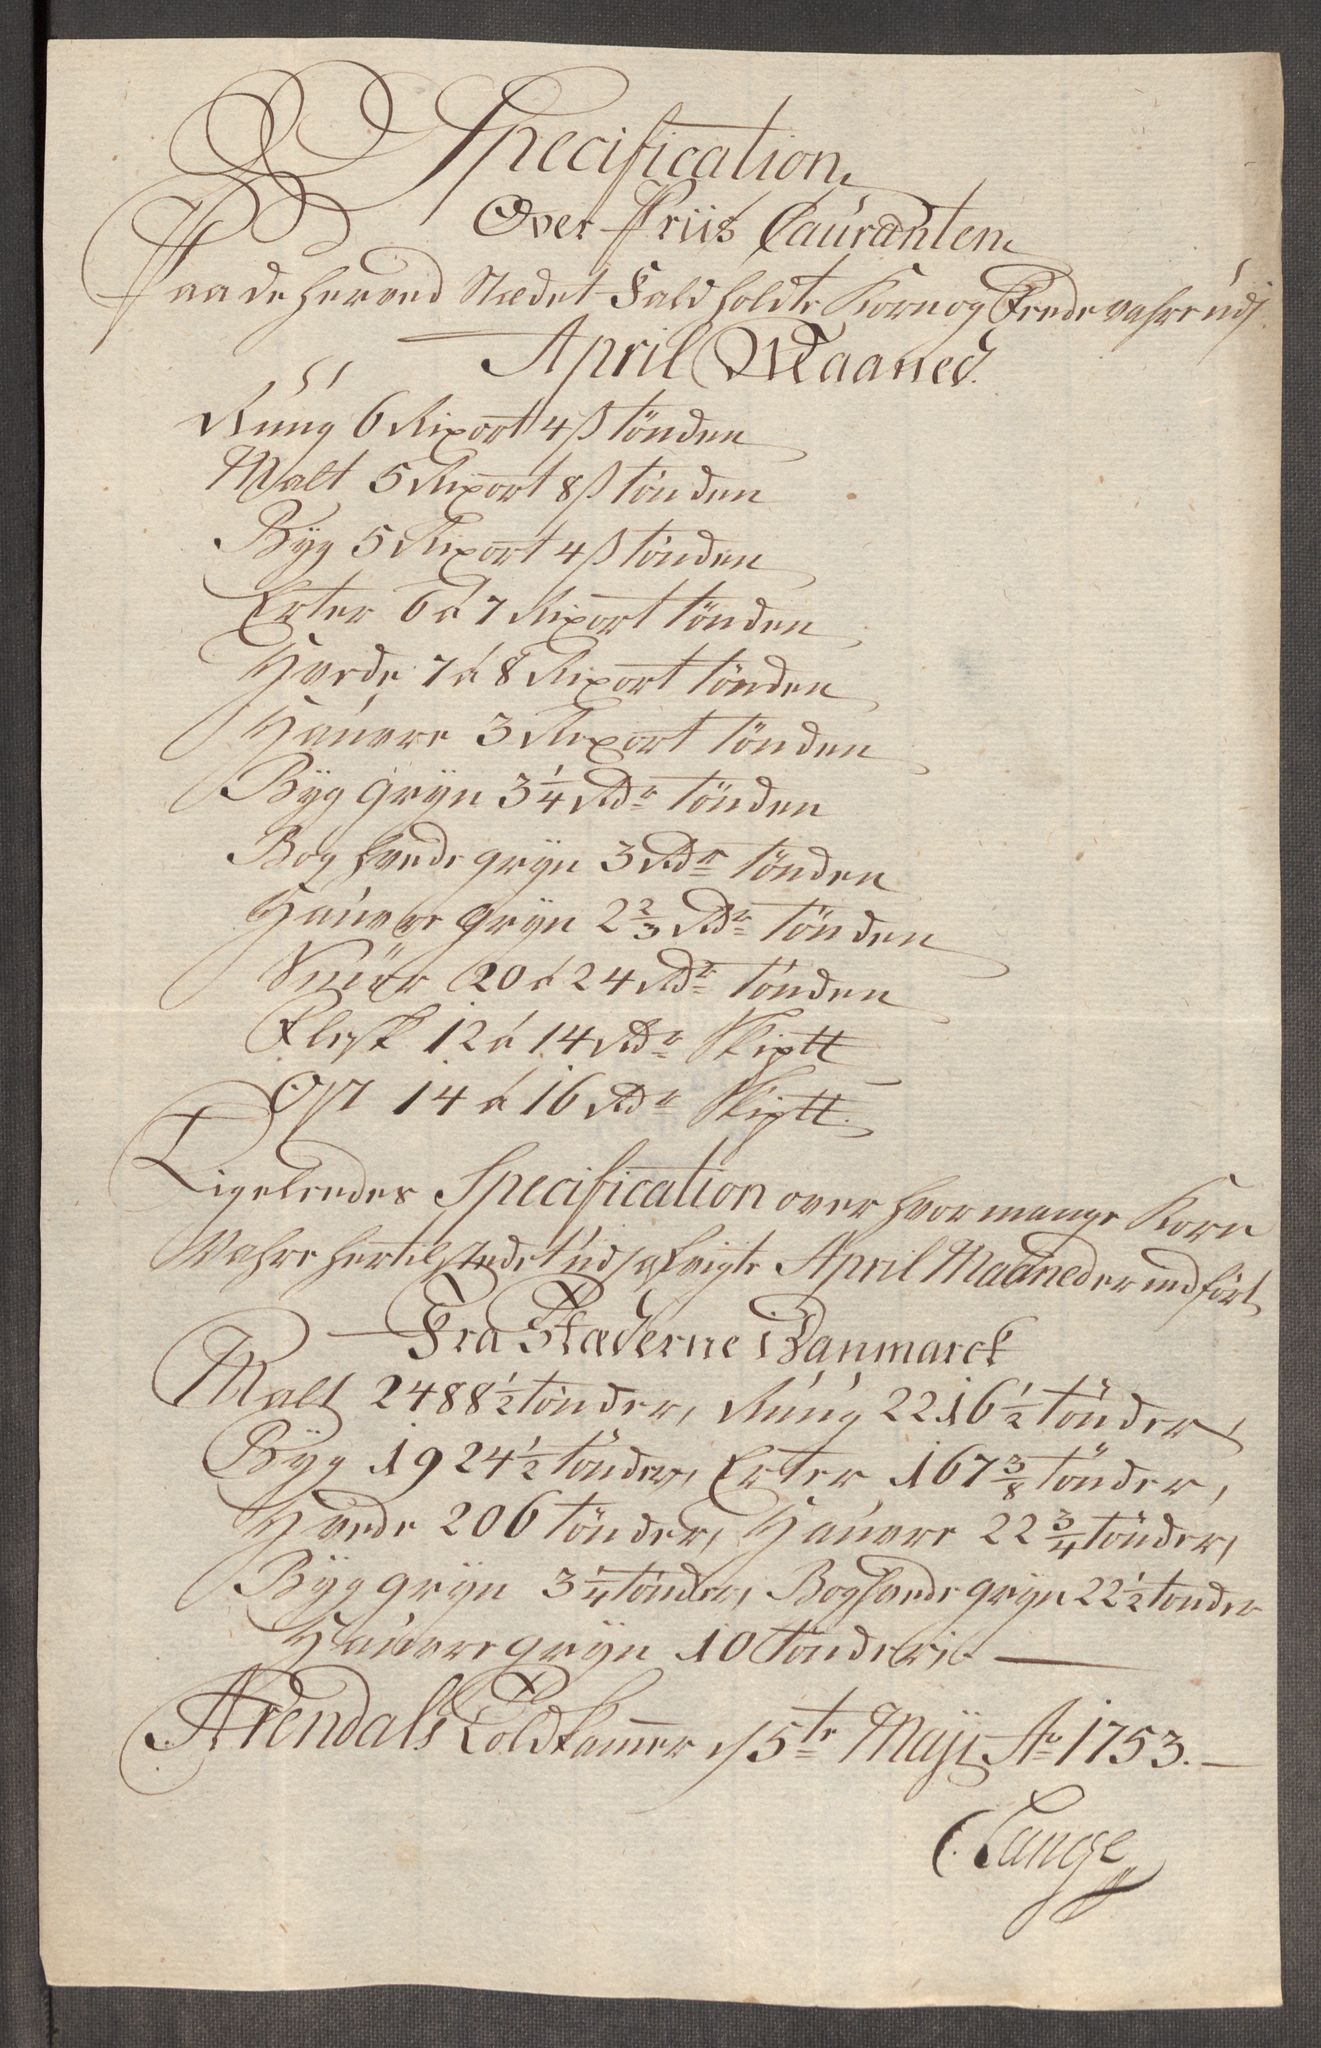 Specification
Over Priis Couranten
Paa de herved Stædet Fald holdte Korn og Fede vahre udj
April Maaned.
Rúúg 6 Rixort 4 ß tönden
Malt 5 Rixort 8 ß tönden
Bÿg 5 Rixort 4 ß tönden
Erter 6 á 7 Rixort tönden
Hvede 7 á 8 Rixort tönden
Haúvre 3 Rixort tönden
Bÿg grÿn 3 1/4 Rdr tönden
Boghvede grÿn 3 Rdr tönden
Haúvre grÿn 2 2/3 Rdr tönden
Smöer 20 á 24 Rdr tönden
Flesk 12 á 14 Rdr Skiptt
Ost 14 á 16 Rdr Skiptt.
Ligeleedes Specification over hvor mange Korn
Vahre hertil stedet udj afvigte April Maaned er indfört
Fra Stæderne i Danmarck
Malt 2488 1/2 tönder, Rúúg 2216 1/2 tönder,
Bÿg 1924 1/2 tönder, Erter 167 3/8 tönder,
Hvede 206 tönder, Haúvre 22 3/4 tönder,
Bÿg grÿn 3 1/4 tönder, Boghvede grÿn 22 1/2 tönder
Haúvre grÿn 10 tönder
Arendals Toldkammer d 5te Maji Ao 1753.
C. Lange